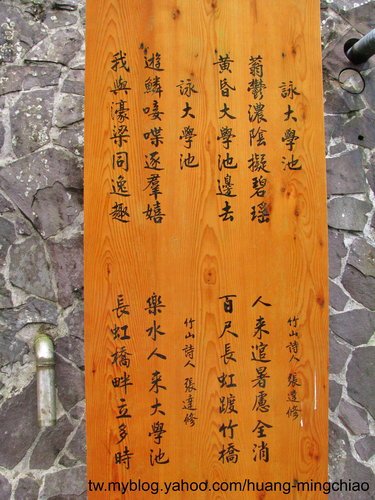 詠大學池
竹山詩人 張達修
蓊鬱濃陰擬碧瑤
人來逭暑慮全消
黃昏大學池邊去
百尺長虹踱竹橋
詠大學池
竹山詩人 張達修
遊鱗唼喋逐羣嬉
樂水人來大學池
我與濠梁同逸趣
長虹橋畔立多時
tw.myblog.yahoo.com/huang-mingchiao